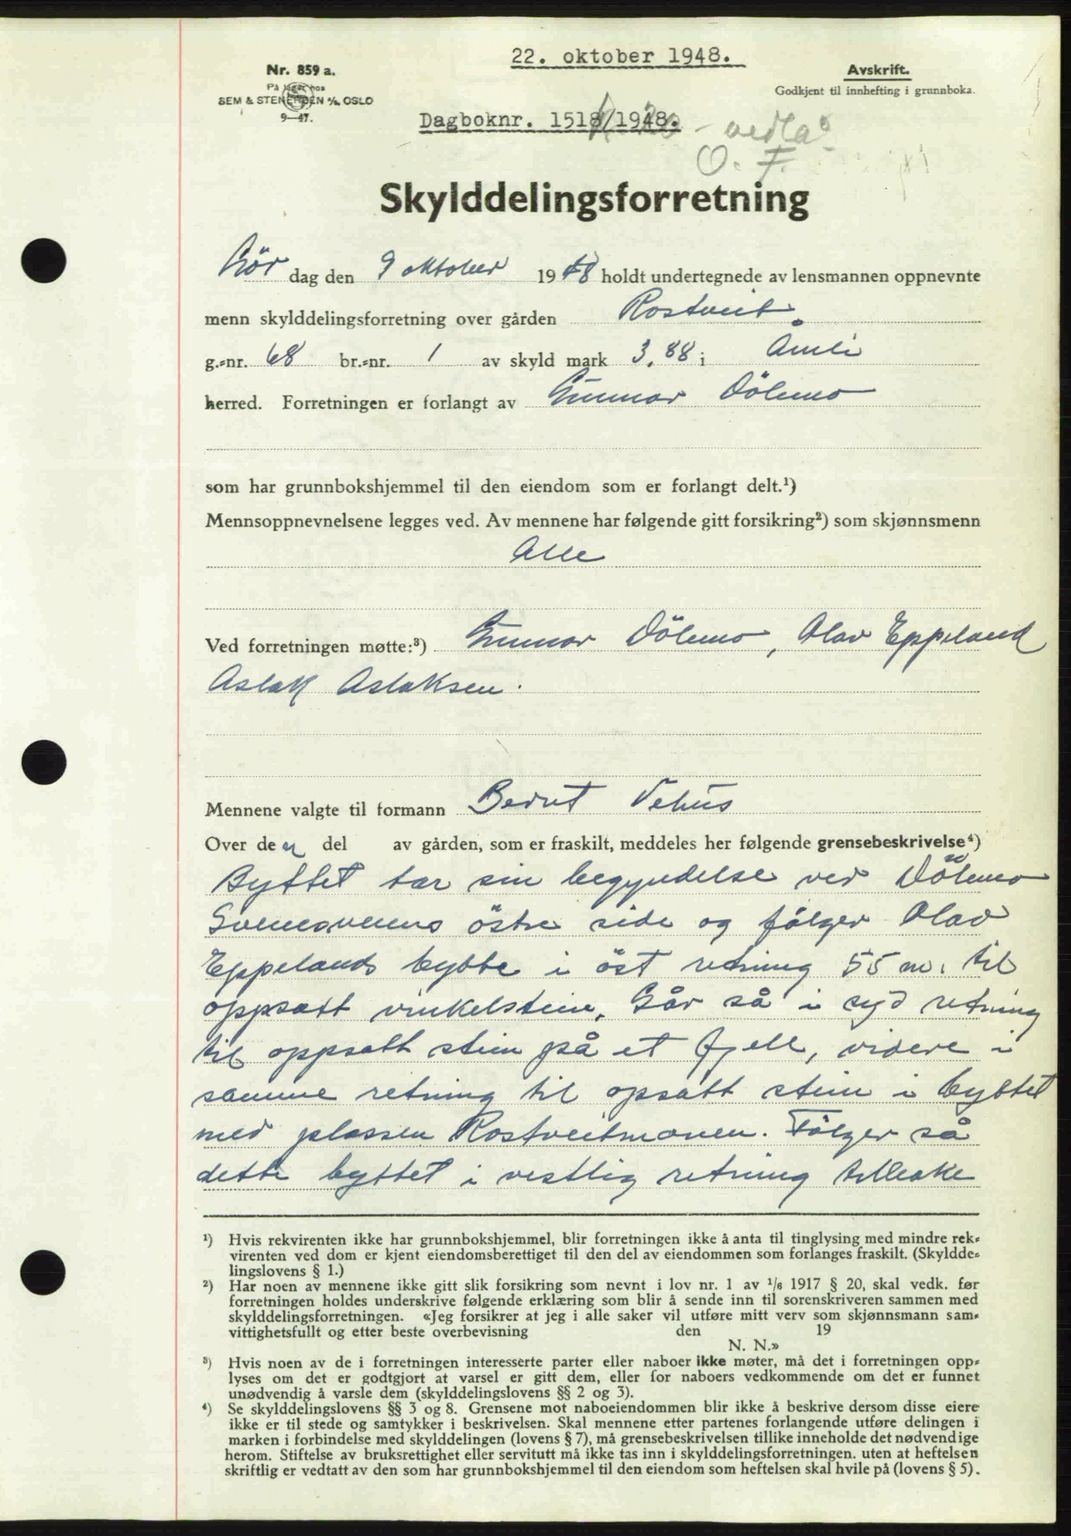 22. oktober 1948.
Nr. 859 a.
På lager hos
SEM & STENERSEN A/S, OSLO
9—47.
Avskrift.
Godkjent til innhefting i grunnboka.
Dagboknr. 1518/1948. - vedla
O. F.
Skylddelingsforretning
Lör dag den 9 oktober 1948 holdt undertegnede av lensmannen oppnevnte
menn skylddelingsforretning over gården Rostveit
g.-nr. 68 br.-nr. 1 av skyld mark 3,88 i Åmli
herred. Forretningen er forlangt av Gunnar Dölemo
som har grunnbokshjemmel til den eiendom som er forlangt delt.¹)
Mennsoppnevnelsene legges ved. Av mennene har følgende gitt forsikring²) som skjønnsmenn
Alle
Ved forretningen møtte:³) Gunnar Dölemo, Olav Eppeland
Aslak Aslaksen.
Mennene valgte til formann Berut Vehus
Over den del av gården, som er fraskilt, meddeles her følgende grensebeskrivelse⁴)
Byttet tar sin begyndelse ved Dölemo
östre side og fölger Olav
Eppelands bytte i öst retning 55 m. til
oppsatt vinkelstein. Går så i syd retning
til oppsatt stein på et fjell, videre i
samme retning til opsatt stein i byttet
med plassen Rostveitmonen. Fölger så
dette byttet i vestlig retning tilbake
¹) Hvis rekvirenten ikke har grunnbokshjemmel, blir forretningen ikke å anta til tinglysing med mindre rek-
virenten ved dom er kjent eiendomsberettiget til den del av eiendommen som forlanges fraskilt. (Skyldde-
lingslovens § 1.)
²) Har noen av mennene ikke gitt slik forsikring som nevnt i lov nr. 1 av ¹/₆ 1917 § 20, skal vedk. før
forretningen holdes underskrive følgende erklæring som blir å sende inn til sorenskriveren sammen med
skylddelingsforretningen. «Jeg forsikrer at jeg i alle saker vil utføre mitt verv som skjønnsmann sam-
vittighetsfullt og etter beste overbevisning den 19
N. N.»
³) Hvis noen av de i forretningen interesserte parter eller naboer ikke møter, må det i forretningen opp-
lyses om det er godtgjort at varsel er gitt dem, eller for naboers vedkommende om det er funnet
unødvendig å varsle dem (skylddelingslovens §§ 2 og 3).
⁴) Se skylddelingslovens §§ 3 og 8. Grensene mot naboeiendommen blir ikke å beskrive dersom disse eiere
ikke er til stede og samtykker i beskrivelsen. Skal mennene etter partenes forlangende utføre delingen i
marken i forbindelse med skylddelingen (lovens § 7), må grensebeskrivelsen tillike inneholde det nødvendige
herom. Stiftelse av bruksrettighet eller servitutt må ikke tas inn i skylddelingsforretningen, uten at heftelsen
skriftlig er vedtatt av den som har grunnbokshjemmel til den eiendom som heftelsen skal hvile på (lovens § 5).